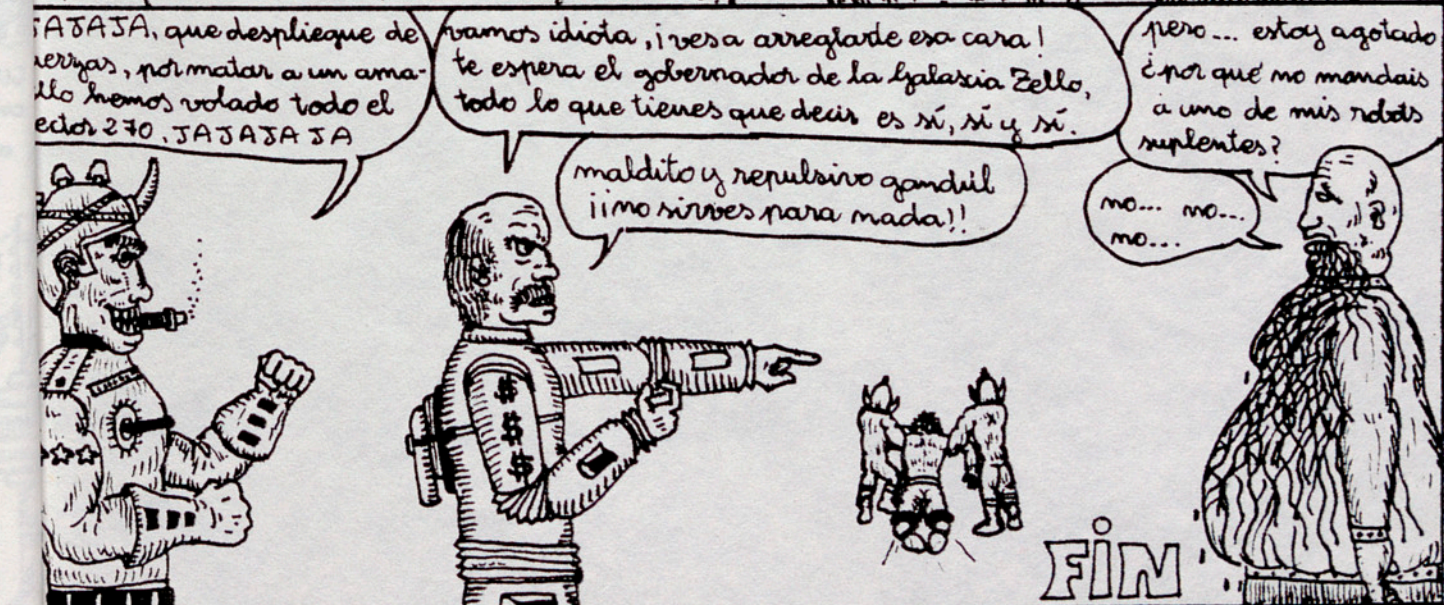 JAJAJA, que despliegue de
uerzas, por matar a un ama-
llo hemos volado todo el
ector 270. JAJAJAJA
vamos idiota, ¡ves a arreglarte esa cara!
te espera el gobernador de la Galaxia Zello,
todo lo que tienes que decir es sí, sí y sí.
maldito y repulsivo gandúl
¡¡no sirves para nada!!
pero... estoy agotado
¿por qué no mandais
a uno de mis robots
suplentes?
no... no...
no...
$
$
$
FiN